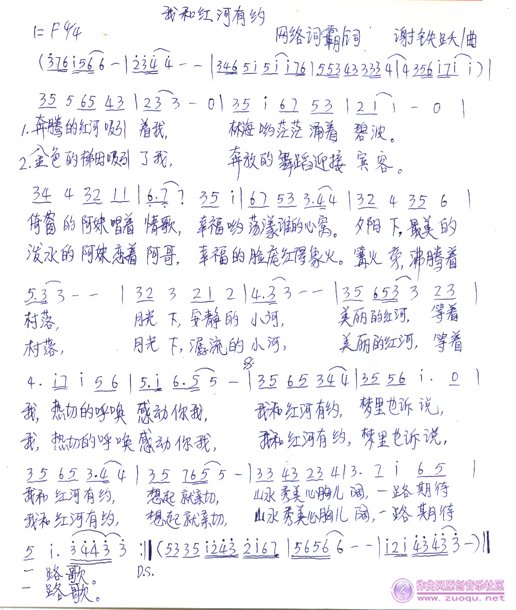 我和红河有约
1=F 4/4 网络词霸/词 谢铁跃/曲
(376i566--|2344--|3465i5ii76|55343334|4356i7ii)|
35 5 65 43|223 3-0|35 i 67 53|2 1 1 - 0|
1.奔腾的红河吸引 着我, 林海哟茫茫 涌着 碧波。
2.金色的梯田吸引 了我, 奔放的舞蹈迎接 宾客。
34 4 32 11|6.7 7 35 i|67 53 3.44|32 4 35 6|
倚窗的阿妹唱着 情歌, 幸福哟荡漾谁的心窝。夕阳下,最美的
泼水的阿妹恋着 阿哥, 幸福的脸庞红得象火。篝火旁,沸腾着
5.3 3 - -|32 3 21 2|4.3 3 - -|35 653 3 23|
村落, 月光下,安静的小河, 美丽的红河, 等着
村落, 月光下,潺流的小河, 美丽的红河, 等着
4. i7 i 56|5.i 6.5 5 -|35 65 34 4|35 56 i. 0|
我,热切的呼唤 感动你我, 我和红河有约, 梦里也诉说,
我,热切的呼唤 感动你我, 我和红河有约,梦里也诉说,
35 65 3.4 4|35 765 5 -|33 43 23 4|3. 7 i 65|
我和红河有约, 想起就亲切, 山水秀美心胸儿阔,一路期待
我和红河有约, 想起就亲切, 山水秀美心胸儿阔,一路期待
5 i. 3443 3 :‖(5335 i243 2i67|56566--|i2i43433-)‖
一路歌。 D.S.
一路歌。
作曲网原创音乐社区
www.zuoqu.net